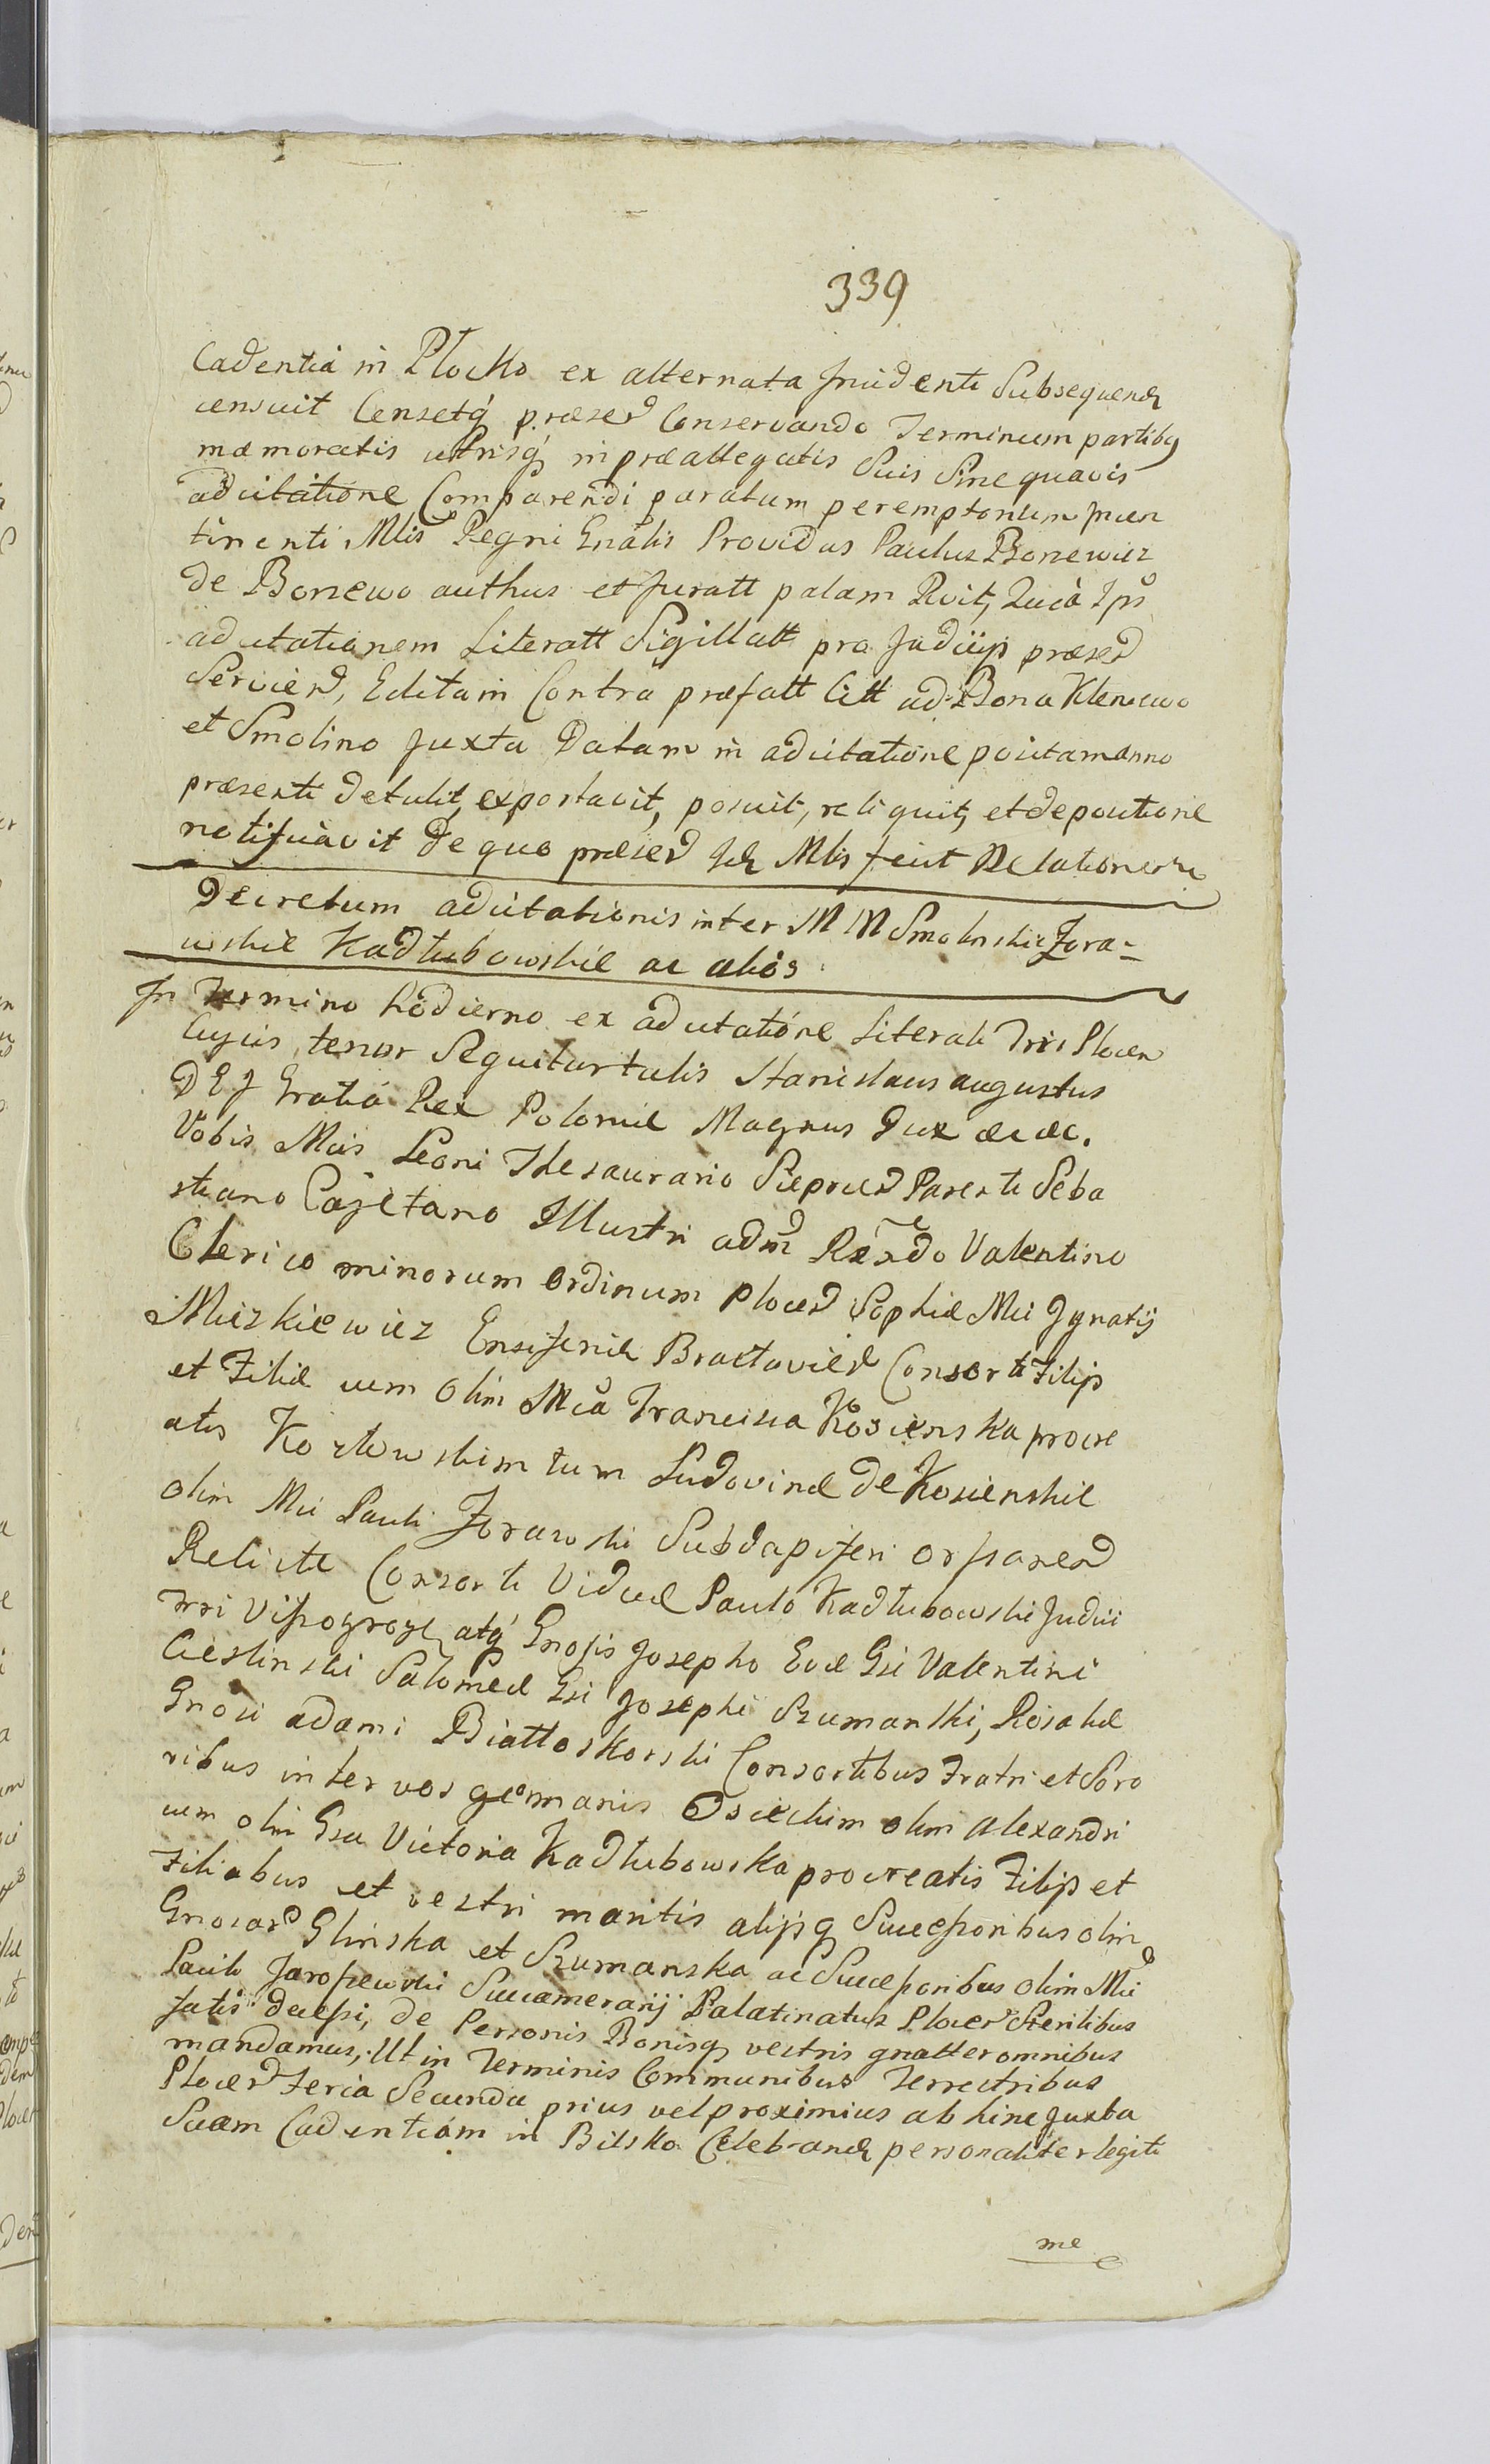 339
Cadentia in Płocko ex alternata Incidenti Subsequend
censuit Censetq præsed Conservando Terminum partibq
mæmoratis utrisq in præallegatis Suis Sine quavis
adcitatione Comparendi paratum peremptorium Incon
tinenti Mlis Regni Gnalis Providus Paulus Bonewicz
de Bonewo authus et Juratt palam Rvit, Quia Ips
adcitationem Literatt Sigillatt pro Judicijs præsed
Servied, Editam Contra præfatt Citt ad Bona Kleniewo
et Smolino Juxta Datam in adcitatione positam anno
præsenti detulit, exportavit, posuit, reliquit, et depositione
notificavit de quo præsed Mlis fecit Relationem
Decretum adcitationis inter M M Smolinskie Zora-
wskie Kadłubowskie ac alios
In Termino hodierno ex adcitatione Literali Trri Plocen
Cujus tenor Sequitur talis Stanislaus augustus
DEJ Gratia Rex Poloniæ Magnus Dux &c &c.
Vobis Mcis Leoni Thesaurario Sieprced Parenti Seba
stiano Cajetano Illustri adm Rendo Valentino
Clerico minorum Ordinum Plocen Sophiæ Mci Jgnatij
Miczkiewicz Ensiferid Bractavied Consorti Filijs
et Filiæ cum Olim Mca Francisca Kosienska procre
atis Kozłowskim tum Ludovinæ de Kosienskie
olim Mci Pauli Zorawski Subdapiferi Orszaned
Relictæ Consorti Viduæ Paulo Kadłubowski Judici
Trri Vissogrogd, atq Gnosis Josepho Evæ Gsi Valentini
Cieslinski Salomeæ Gsi Josephi Szumanski, Rosaliæ
Gnosi adami Białłoskorski Consortibus Fratri et Soro
ribus inter vos germanis Osieckim olim Alexandri
cum olim Gsa Victoria Kadłubowska procreatis Filijs et
Filiabus et vestri maritis alijsq Successoribus olim
Gnosar Glinska et Szumanska ac Successoribus olim Mci
Pauli Jaroszewski Succamerarij Palatinatus Plocen Sterilibus
fatis decessi, de Personis Bonisq vestris gnatter omnibus
mandamus, Ut in Terminis Communibus Terrestribus
Plocen Feria Secunda prius vel proximius ab hinc Juxta
Suam Cadentiam in Bilsko Celebrand personaliter legiti
me